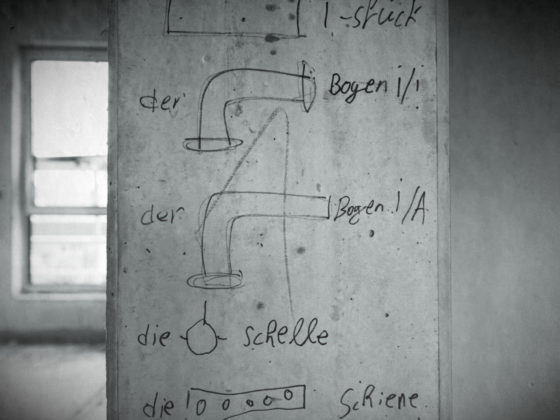 T-stück
der Bogen i/i
der Bogen i/A
die schelle
die schiene